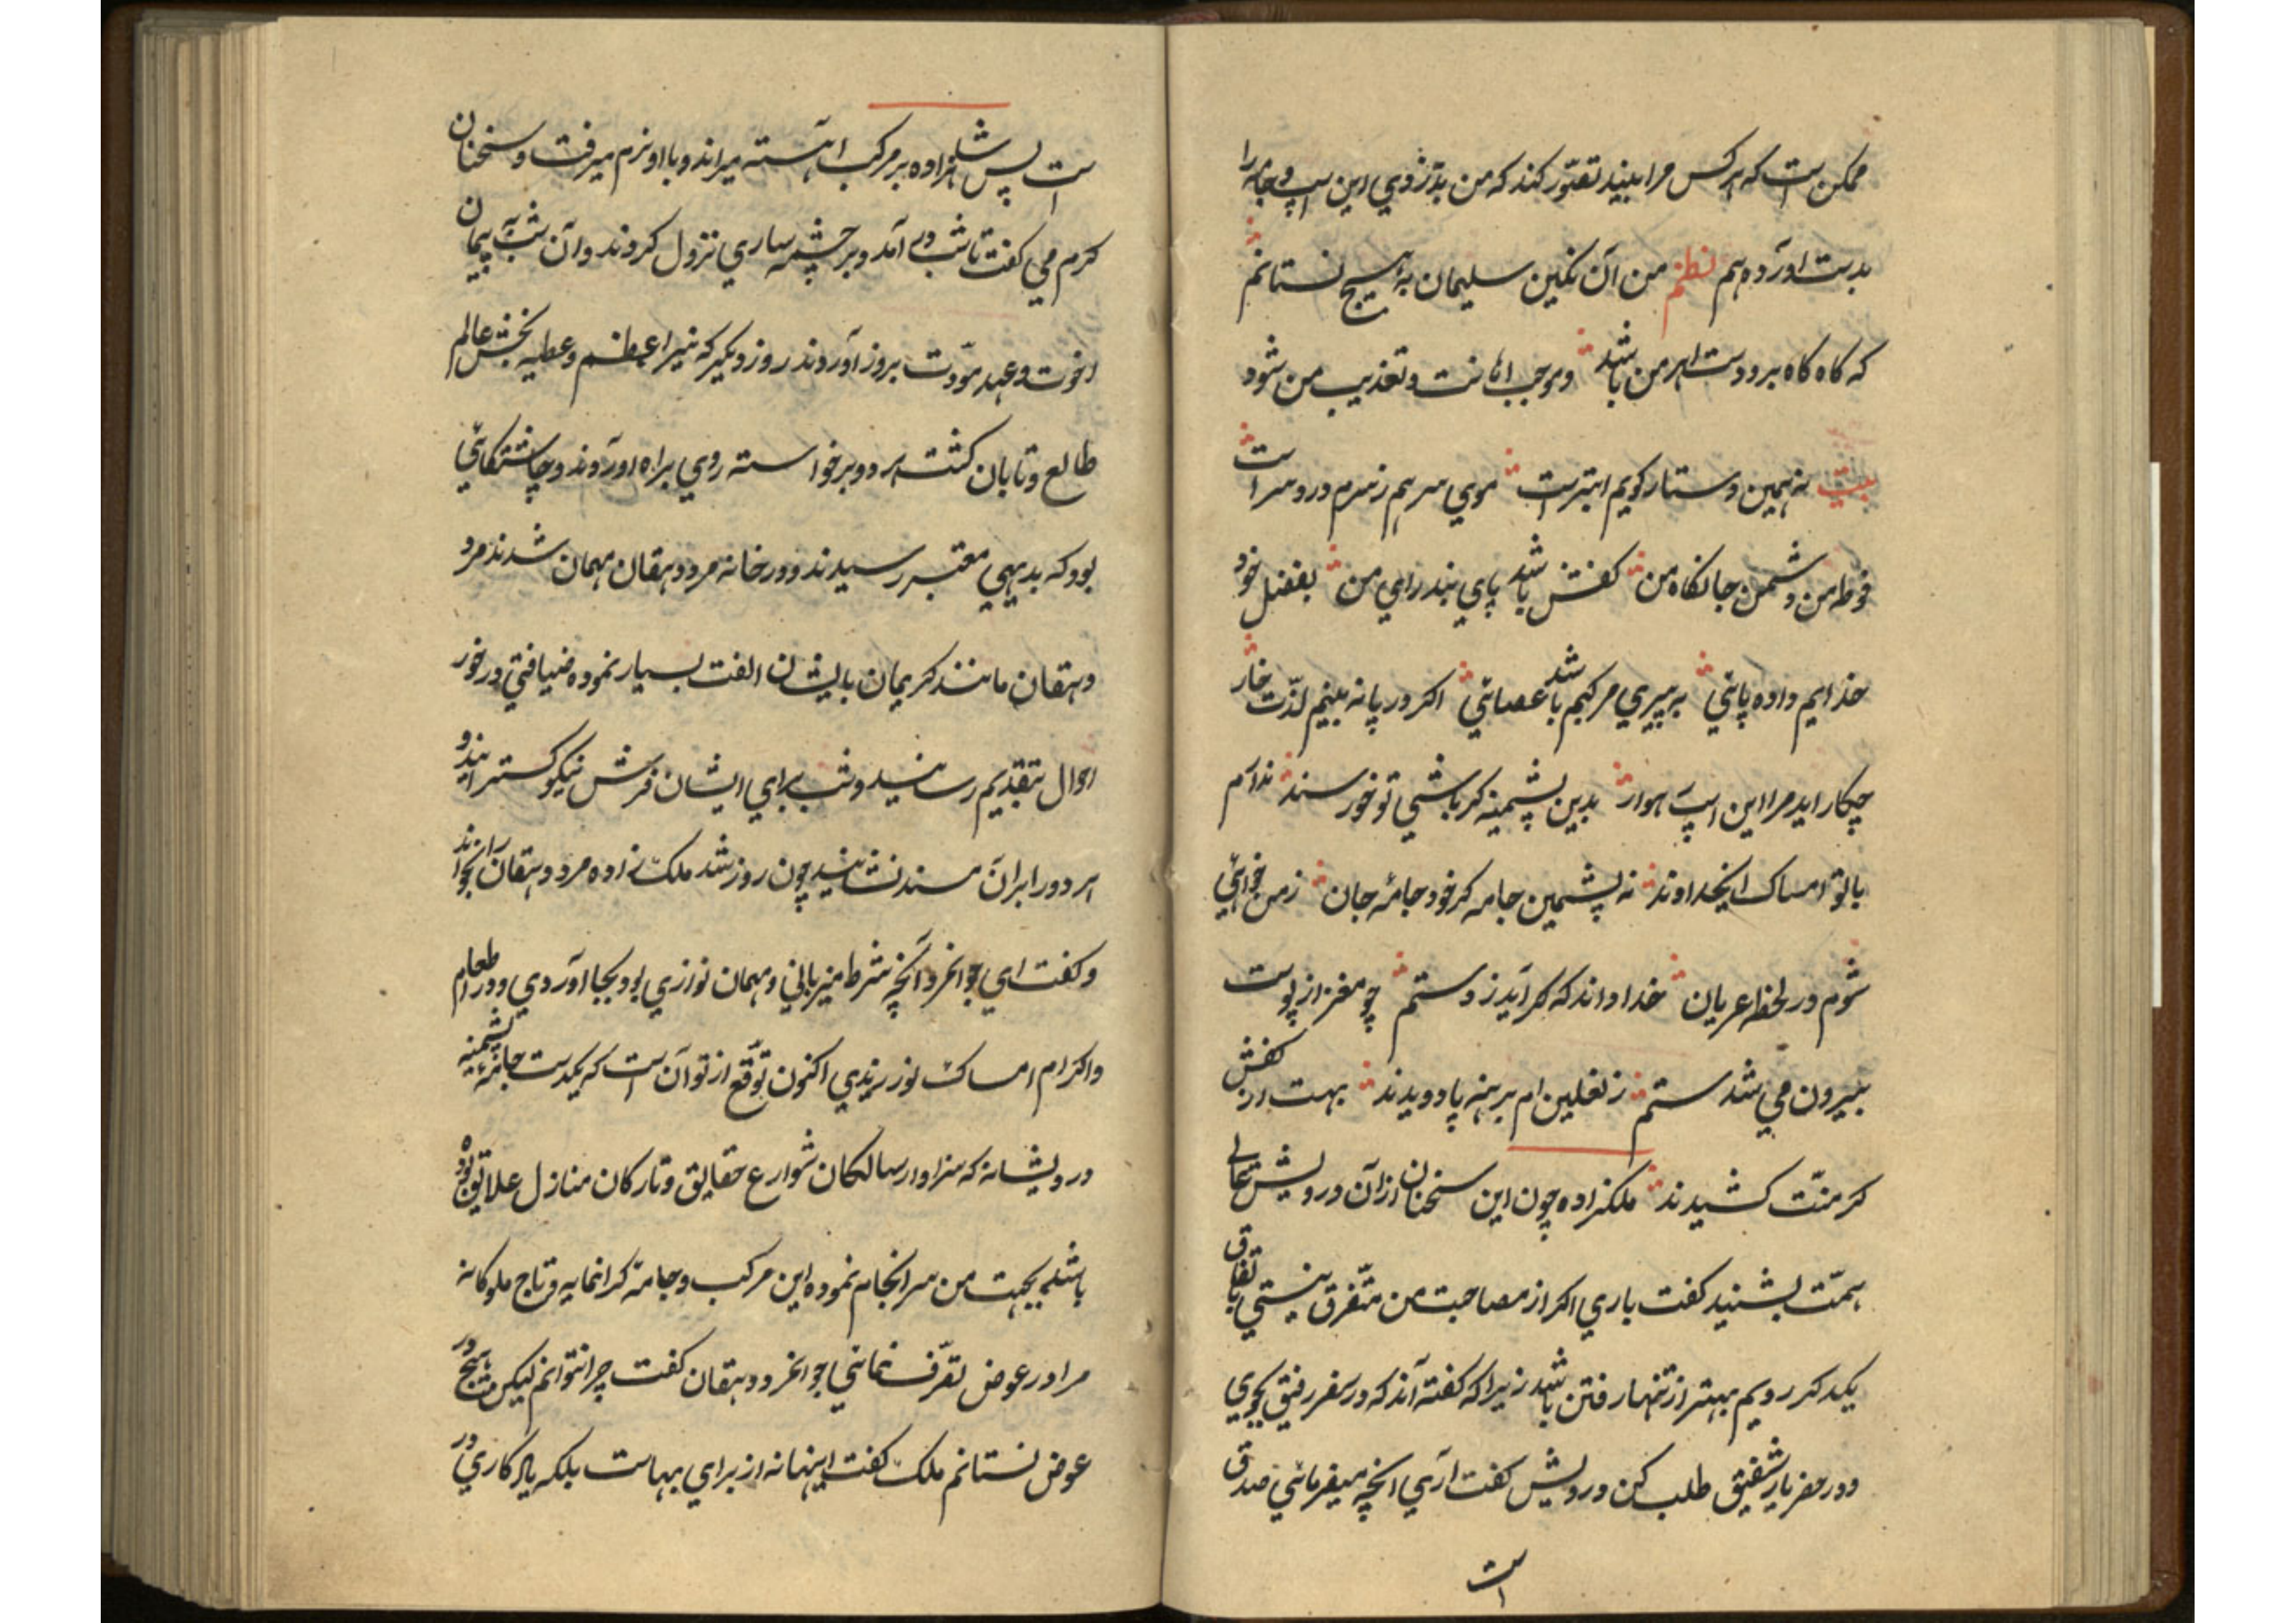 ممکن است که هرکس مرا ببیند تصوّر کند که من بدزدی این اسپ و جامه را
بدست آورده‌ام نظم من آن نکین سلیمان به هیچ نستانم
که کاه کاه برو دست اهرمن باشد وموجب اهانت وتعذیب من شود
بیت نه همین دستار کویم ابترست موی سر هم ز سرم درد سر است
فوطه من دشمن جانکاه من کفش باشد پای بند رای من بفضل خود
خدایم داده پائی به پیری مرکبم باشد عصائی اکر در پا نه بینم لذّت خار
چکار اید مرا این اسپ هوار بدین پشمینه کر باشی تو خورسند ندارم
با تو امساک ایخداوند نه پشمین جامه کر خود جامهٔ جان ز من خواهی
شوم در لحظه عریان خدا داند که کر آید ز دستم چو مغز از پوست
بیرون می شدستم ز نعلین ام برهنه پا دویدند بهت از کفش
کر منّت کشیدند ملکزاده چون این سخنان ازان درویش عالی
همّت بشنید کفت باری اکر از مصاحبت من متّفرق نیستی باتفاق
یکدکر رویم بهتر از تنها رفتن باشد زیرا که کفته‌اند که در سفر رفیق بجوی
ودر حضر یار شفیق طلب کن درویش کفت آری انچه میفرمائی صدق
است
است پس شاهزاده بر مرکب اهسته میراند وبا او نرم میرفت وسخنان
کرم می کفت تا شب در آمد وبر چشمه ساری نزول کردند وآن شب به پیمان
اخوت وعهد مودّت بروز آوردند روز دیکر که نیر اعظم وعطیه بخش عالم
طالع وتابان کشت هر دو برخواسته روی براه آوردند وچاشتکاهی
بود که بدیهی معتبر رسیدند ودر خانه مرد دهقان مهمان شدند مرد
دهقان مانند کریمان بایشان الفت بسیار نموده ضیافتی در خور
احوال بتقدیم رسانید وشب برای ایشان فرش نیکو کسترانید و
هر دو را بران مسند نشانید چون روز شد ملک زاده مرد دهقان را بخواند
وکفت ای جوانمرد آنچه شرط میزبانی ومهمان نوازی بود بجا آوردی ودر اطعام
واکرام امساک نورزیدی اکنون توقّع از تو آن است که یکدست جامهٔ پشمینه
درویشانه که سزاوار سالکان شوارع حقایق وتارکان منازل علایق بوده
باشد بجهت من سرانجام نموده این مرکب وجامه کرانمایه وتاج ملوکانه
مرا در عوض تصرّف نمائی جوانمرد دهقان کفت چرا نتوانم لیکن هیچ در
عوض نستانم ملک کفت اینها نه از برای بهاست بلکه یادکاری در